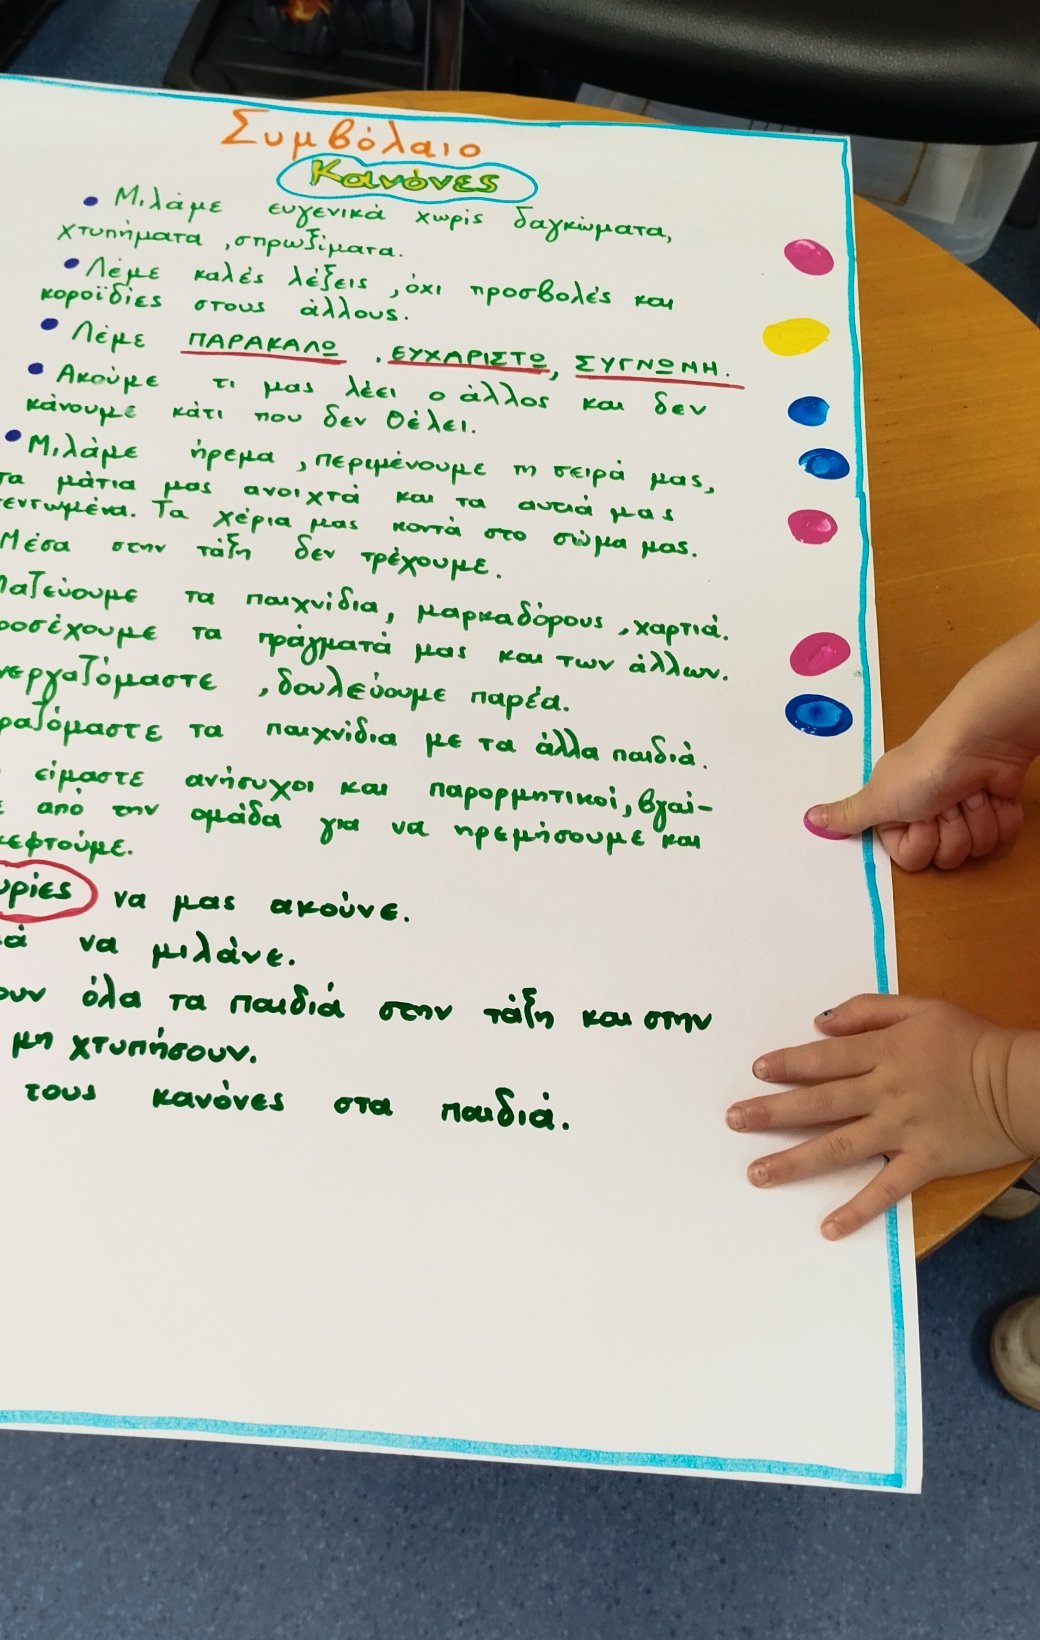 Συμβόλαιο
Κανόνες
• Μιλάμε ευγενικά χωρίς δαγκώματα,
χτυπήματα, σπρωξίματα.
• Λέμε καλές λέξεις, όχι προσβολές και
κοροϊδίες στους άλλους.
• Λέμε ΠΑΡΑΚΑΛΩ, ΕΥΧΑΡΙΣΤΩ, ΣΥΓΝΩΜΗ.
• Ακούμε τι μας λέει ο άλλος και δεν
κάνουμε κάτι που δεν θέλει.
• Μιλάμε ήρεμα, περιμένουμε τη σειρά μας,
τα μάτια μας ανοιχτά και τα αυτιά μας
τεντωμένα. Τα χέρια μας κοντά στο σώμα μας.
Μέσα στην τάξη δεν τρέχουμε.
Μαζεύουμε τα παιχνίδια, μαρκαδόρους, χαρτιά.
ροσέχουμε τα πράγματά μας και των άλλων.
νεργαζόμαστε, δουλεύουμε παρέα.
ραζόμαστε τα παιχνίδια με τα άλλα παιδιά.
είμαστε ανήσυχοι και παρορμητικοί, βγαί-
ε από την ομάδα για να ηρεμήσουμε και
κεφτούμε.
υρίες να μας ακούνε.
ά να μιλάνε.
ουν όλα τα παιδιά στην τάξη και στην
μη χτυπήσουν.
τους κανόνες στα παιδιά.